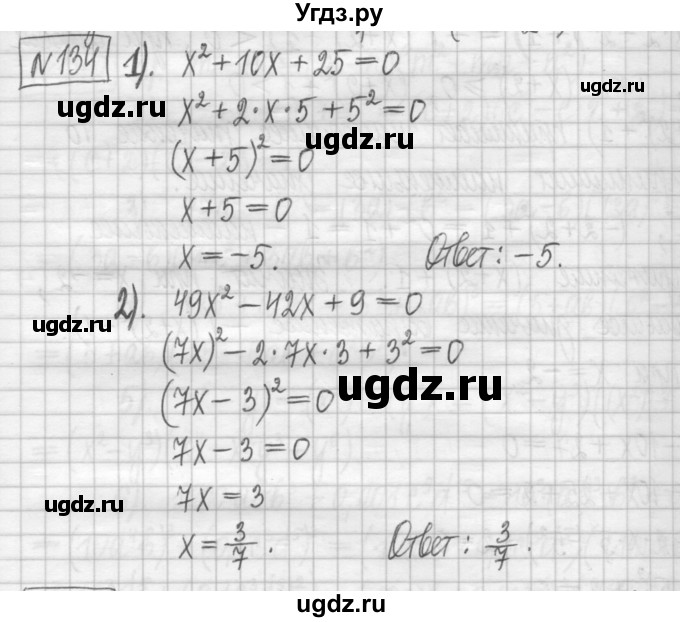 Угдз.ру
№134 1). x² + 10x + 25 = 0
ugdz.ru ugdz.ru
x² + 2·x·5 + 5² = 0
ugdz.ru
(x + 5)² = 0
x + 5 = 0
x = -5. Ответ: -5.
2). 49x² - 42x + 9 = 0
ugdz.ru
(7x)² - 2·7x·3 + 3² = 0
ugdz.ru
(7x - 3)² = 0
7x - 3 = 0
7x = 3
ugdz.ru
x = 3/7. Ответ: 3/7.
ugdz.ru